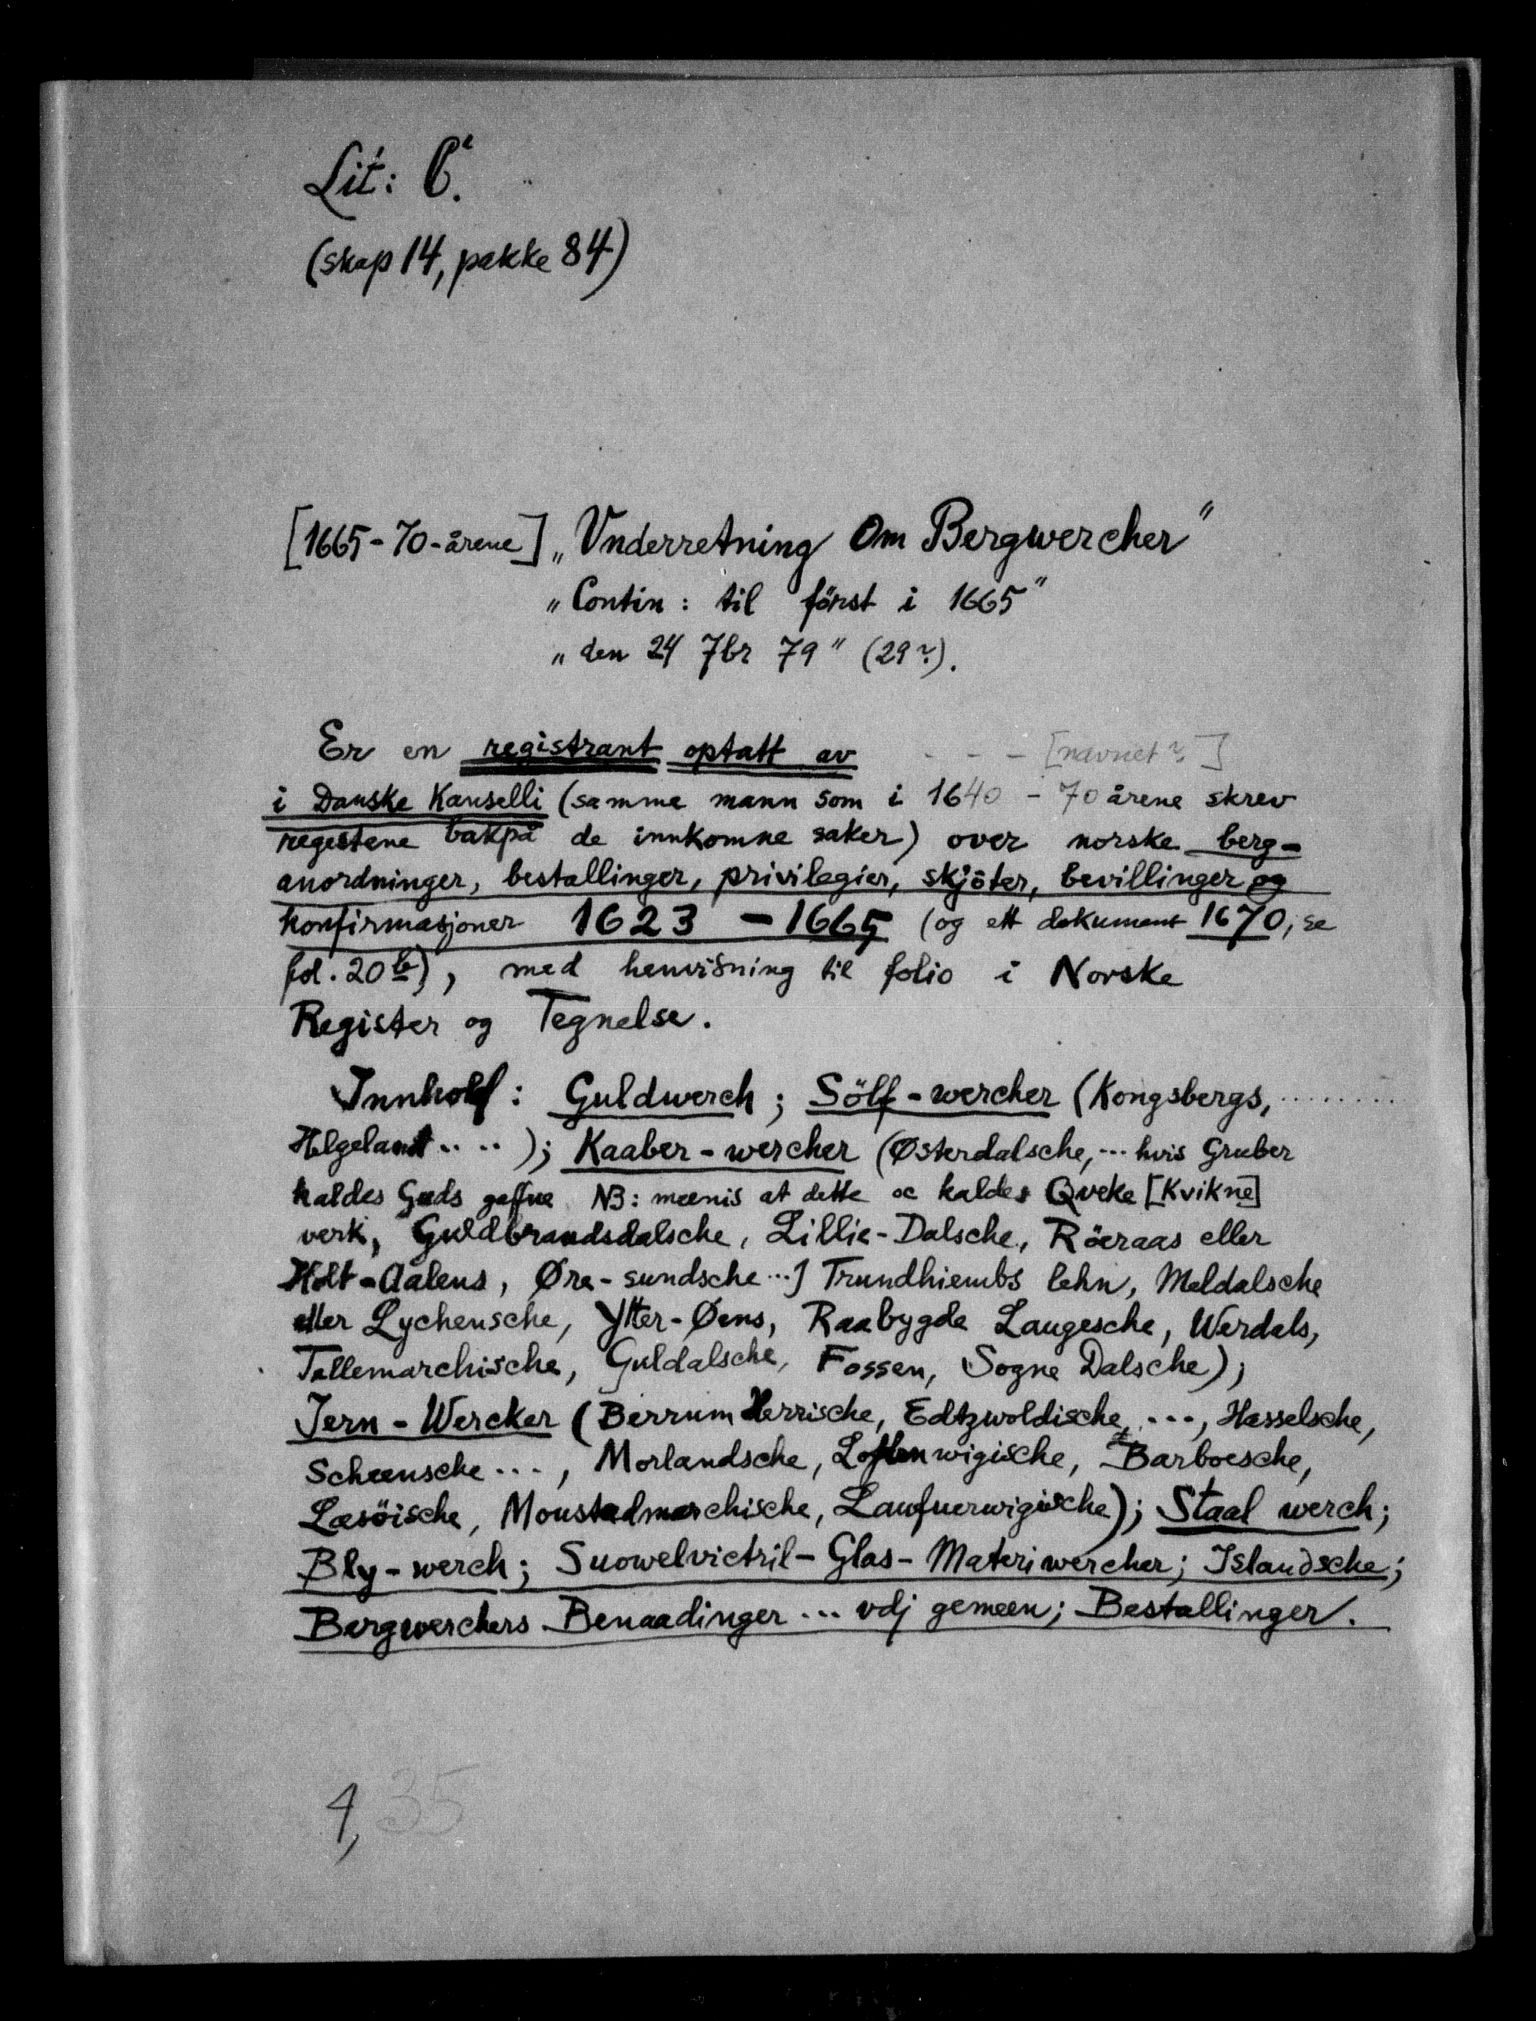 Lit: C.
(skap 14, pakke 84)
[1665-70-årene] „Vnderretning Om Bergwercher"
„Contin: til först i 1665"
„den 24 7br 79" (29?).
Er en registrant optatt av - - - [navnet?]
i Danske Kanselli (samme mann som i 1640 - 70 årene skrev
regestene bakpå de innkomne saker) over norske berg-
anordninger, bestallinger, privilegier, skjöter, bevillinger og
konfirmasjoner 1623 - 1665 (og ett dokument 1670, se
fol. 20 b), med henvisning til folio i Norske
Register og Tegnelse.
Innhold: Guldwerch; Sölf-wercher (Kongsbergs, ........
Helgelandt ....); Kaaber-wercher (Østerdalsche, ... hvis Gruber
kaldes Guds gaffue NB: meenis at dette oc kaldes Qveke [Kvikne]
verk, Guldbrandsdalsche, Lillie-Dalsche, Röeraas eller
Holt-Aalens, Øre-sundsche ...] Trundhiembs lehn, Meldalsche
eller Lychensche, Ytter-Øens, Raabygde Laugesche, Werdals,
Tellemarchische, Guldalsche, Fossen, Sogne Dalsche);
Jern-Wercker (Berrum Herrische, Edtzwoldische, ..., Hasselsche,
Scheensche ..., Morlandsche, wigische, Barboesche,
Læsöische, Moustadmarchische, Laufuerwigische); Staal werch;
Bly-werch; Suowelvictril-Glas-Materiwercher; Islandsche;
Bergwerchers Benaadinger ... vdj gemeen; Bestallinger.
4,35